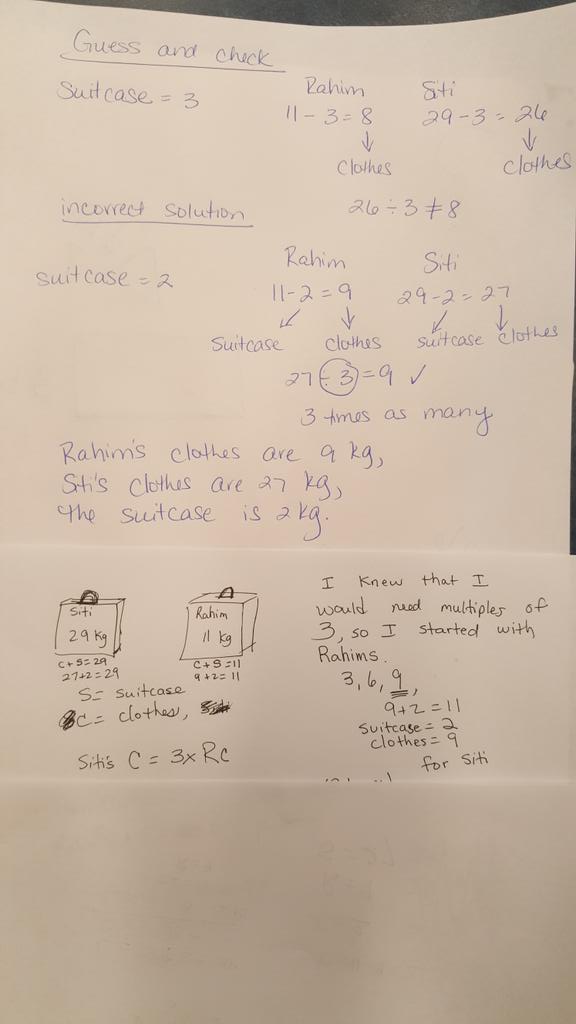 Guess and check
Suitcase = 3
Rahim Siti
11 - 3 = 8 29 - 3 = 26
↓ ↓
Clothes Clothes
incorrect solution 26 ÷ 3 ≠ 8
Rahim Siti
suitcase = 2 11 - 2 = 9 29 - 2 = 27
↙ ↓ ↙ ↓
Suitcase clothes suitcase clothes
27 ÷ 3 = 9 ✓
3 times as many
Rahim's clothes are 9 kg,
Siti's clothes are 27 kg,
the suitcase is 2 kg.
Siti
29 kg
C + S = 29
27 + 2 = 29
Rahim
11 kg
C + S = 11
9 + 2 = 11
S = suitcase
C = clothes,
Siti's C = 3 x Rc
I knew that I
would need multiples of
3, so I started with
Rahims.
3, 6, 9,
9 + 2 = 11
suitcase = 2
clothes = 9
for Siti